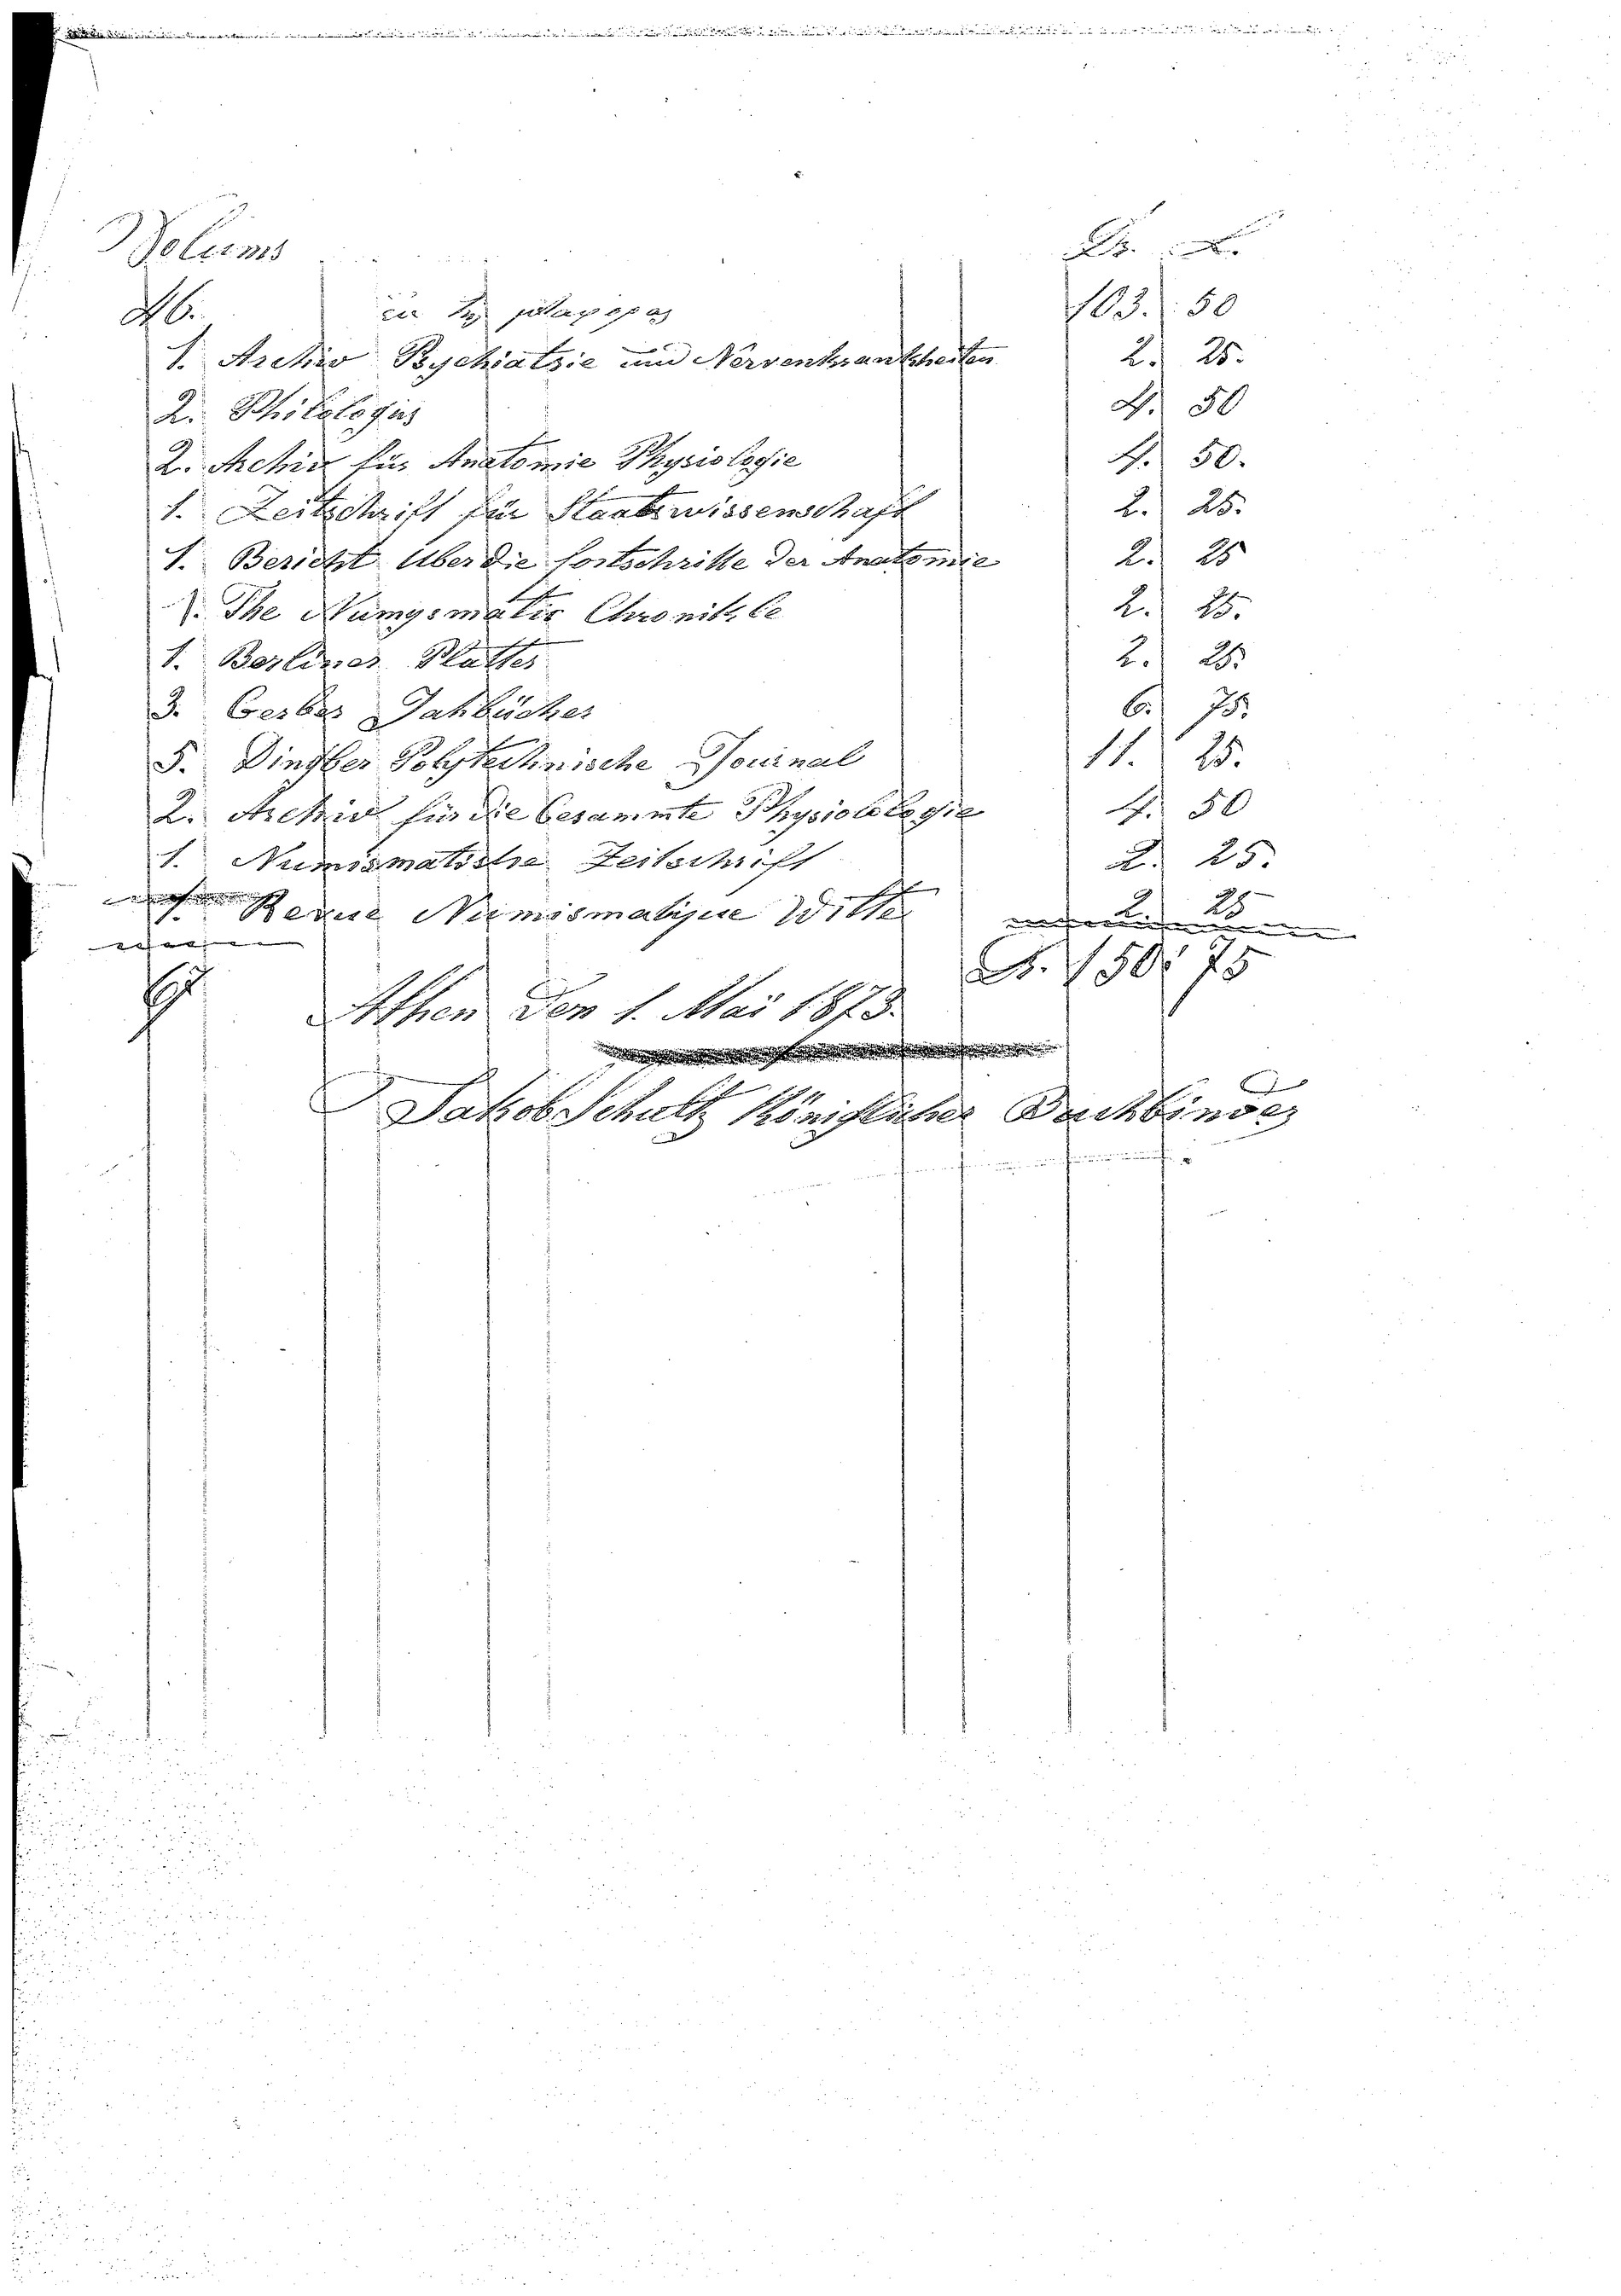 Volums Dr. L.
46. ἐκ τῆς μεταφορᾶς 103. 50
1. Archiv Psychiatrie und Nervenkrankheiten 2. 25.
2. Philologus 4. 50
2. Archiv für Anatomie Physiologie 4. 50.
1. Zeitschrift für Staatswissenschaft 2. 25.
1. Bericht über die fortschritte der Anatomie 2. 25
1. The Numysmatic Chronikle 2. 25.
1. Berliner Blatter 2. 25.
3. Gerber Jahbücher 6. 75.
5. Dingler Polytechnische Journal 11. 25.
2. Archiv für die Gesammte Physiolologie 4. 50
1. Numismatische Zeitschrift 2. 25.
1. Revue Numismatique Witte 2. 25
67 Dr. 150. 75
Athen den 1. Mai 1873.
Jakob Schultz Königlicher Buchbinder